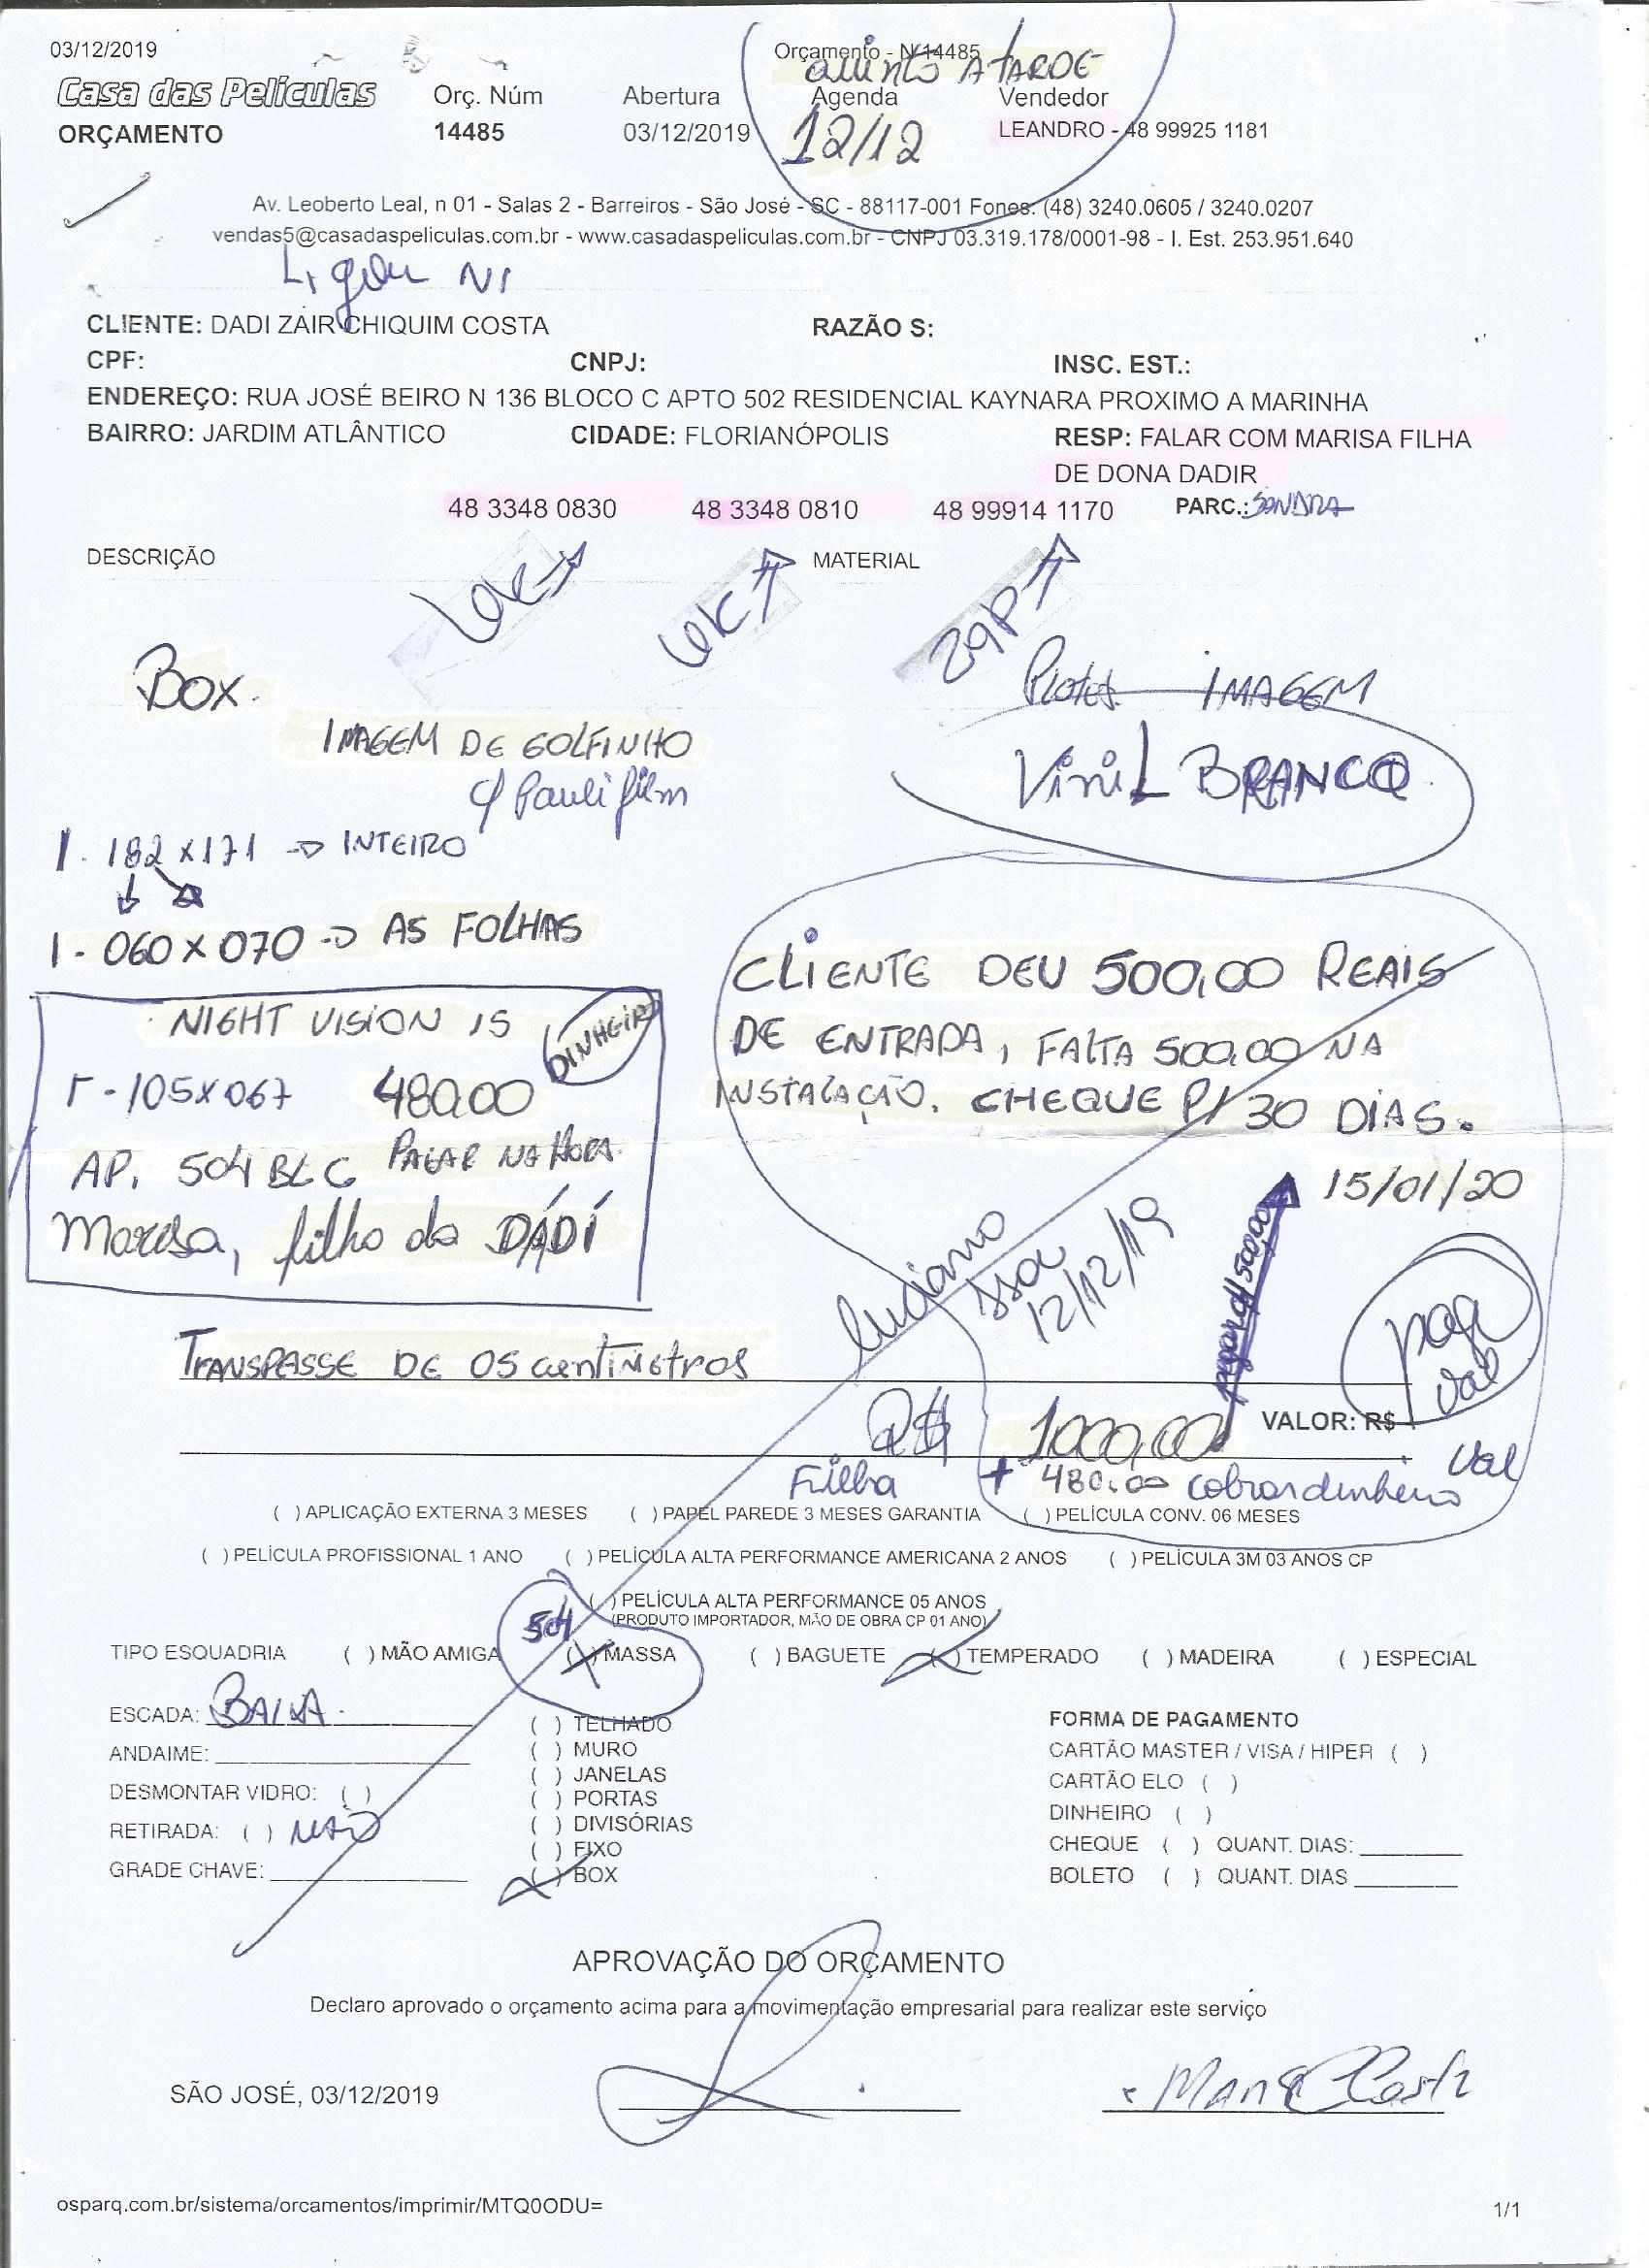 03/12/2019
Orçamento - N 14485
quinta A TARDE
Casa das Películas
Orç. Núm
Abertura
Agenda
Vendedor
ORÇAMENTO
14485
03/12/2019
12/12
LEANDRO - 48 99925 1181
Av. Leoberto Leal, n 01 - Salas 2 - Barreiros - São José - SC - 88117-001 Fones: (48) 3240.0605 / 3240.0207
vendas5@casadaspeliculas.com.br - www.casadaspeliculas.com.br - CNPJ 03.319.178/0001-98 - I. Est. 253.951.640
Ligou
CLIENTE: DADI ZAIR CHIQUIM COSTA
RAZÃO S:
CPF:
CNPJ:
INSC. EST.:
ENDEREÇO: RUA JOSÉ BEIRO N 136 BLOCO C APTO 502 RESIDENCIAL KAYNARA PROXIMO A MARINHA
BAIRRO: JARDIM ATLÂNTICO
CIDADE: FLORIANÓPOLIS
RESP: FALAR COM MARISA FILHA
DE DONA DADIR
48 3348 0830
48 3348 0810
48 99914 1170
PARC.: SANDRA
DESCRIÇÃO
MATERIAL
BOX.
IMAGEM
IMAGEM DE GOLFINHO
c/ Pauli film
VINIL BRANCO
1. 182 x 171 → INTEIRO
1 - 060 x 070 → AS FOLHAS
CLIENTE DEU 500,00 REAIS
DE ENTRADA, FALTA 500,00 NA
INSTALAÇÃO. CHEQUE P/ 30 DIAS.
15/01/20
NIGHT VISION 15
DINHEIRO
1 - 105 x 067 480,00
AP. 504 BL C PAGAR NA HORA
Marisa, filha da DÁDÍ
Luciano
12/12/19
pagar d/ 500,00
paga
Val
TRANSPASSE DE 05 centímetros
R$ 1000,00
VALOR: R$
Filha + 480,00 cobrar dinheiro
Val
( ) APLICAÇÃO EXTERNA 3 MESES ( ) PAPEL PAREDE 3 MESES GARANTIA ( ) PELÍCULA CONV. 06 MESES
( ) PELÍCULA PROFISSIONAL 1 ANO ( ) PELÍCULA ALTA PERFORMANCE AMERICANA 2 ANOS ( ) PELÍCULA 3M 03 ANOS CP
( ) PELÍCULA ALTA PERFORMANCE 05 ANOS
(PRODUTO IMPORTADOR, MÃO DE OBRA CP 01 ANO)
504
TIPO ESQUADRIA ( ) MÃO AMIGA (X) MASSA ( ) BAGUETE (X) TEMPERADO ( ) MADEIRA ( ) ESPECIAL
ESCADA: BAIXA
ANDAIME:
DESMONTAR VIDRO: ( )
RETIRADA: ( ) NÃO
GRADE CHAVE:
( ) TELHADO
( ) MURO
( ) JANELAS
( ) PORTAS
( ) DIVISÓRIAS
( ) FIXO
(X) BOX
FORMA DE PAGAMENTO
CARTÃO MASTER / VISA / HIPER ( )
CARTÃO ELO ( )
DINHEIRO ( )
CHEQUE ( ) QUANT. DIAS:
BOLETO ( ) QUANT. DIAS
APROVAÇÃO DO ORÇAMENTO
Declaro aprovado o orçamento acima para a movimentação empresarial para realizar este serviço
SÃO JOSÉ, 03/12/2019
osparq.com.br/sistema/orcamentos/imprimir/MTQ0ODU=
1/1